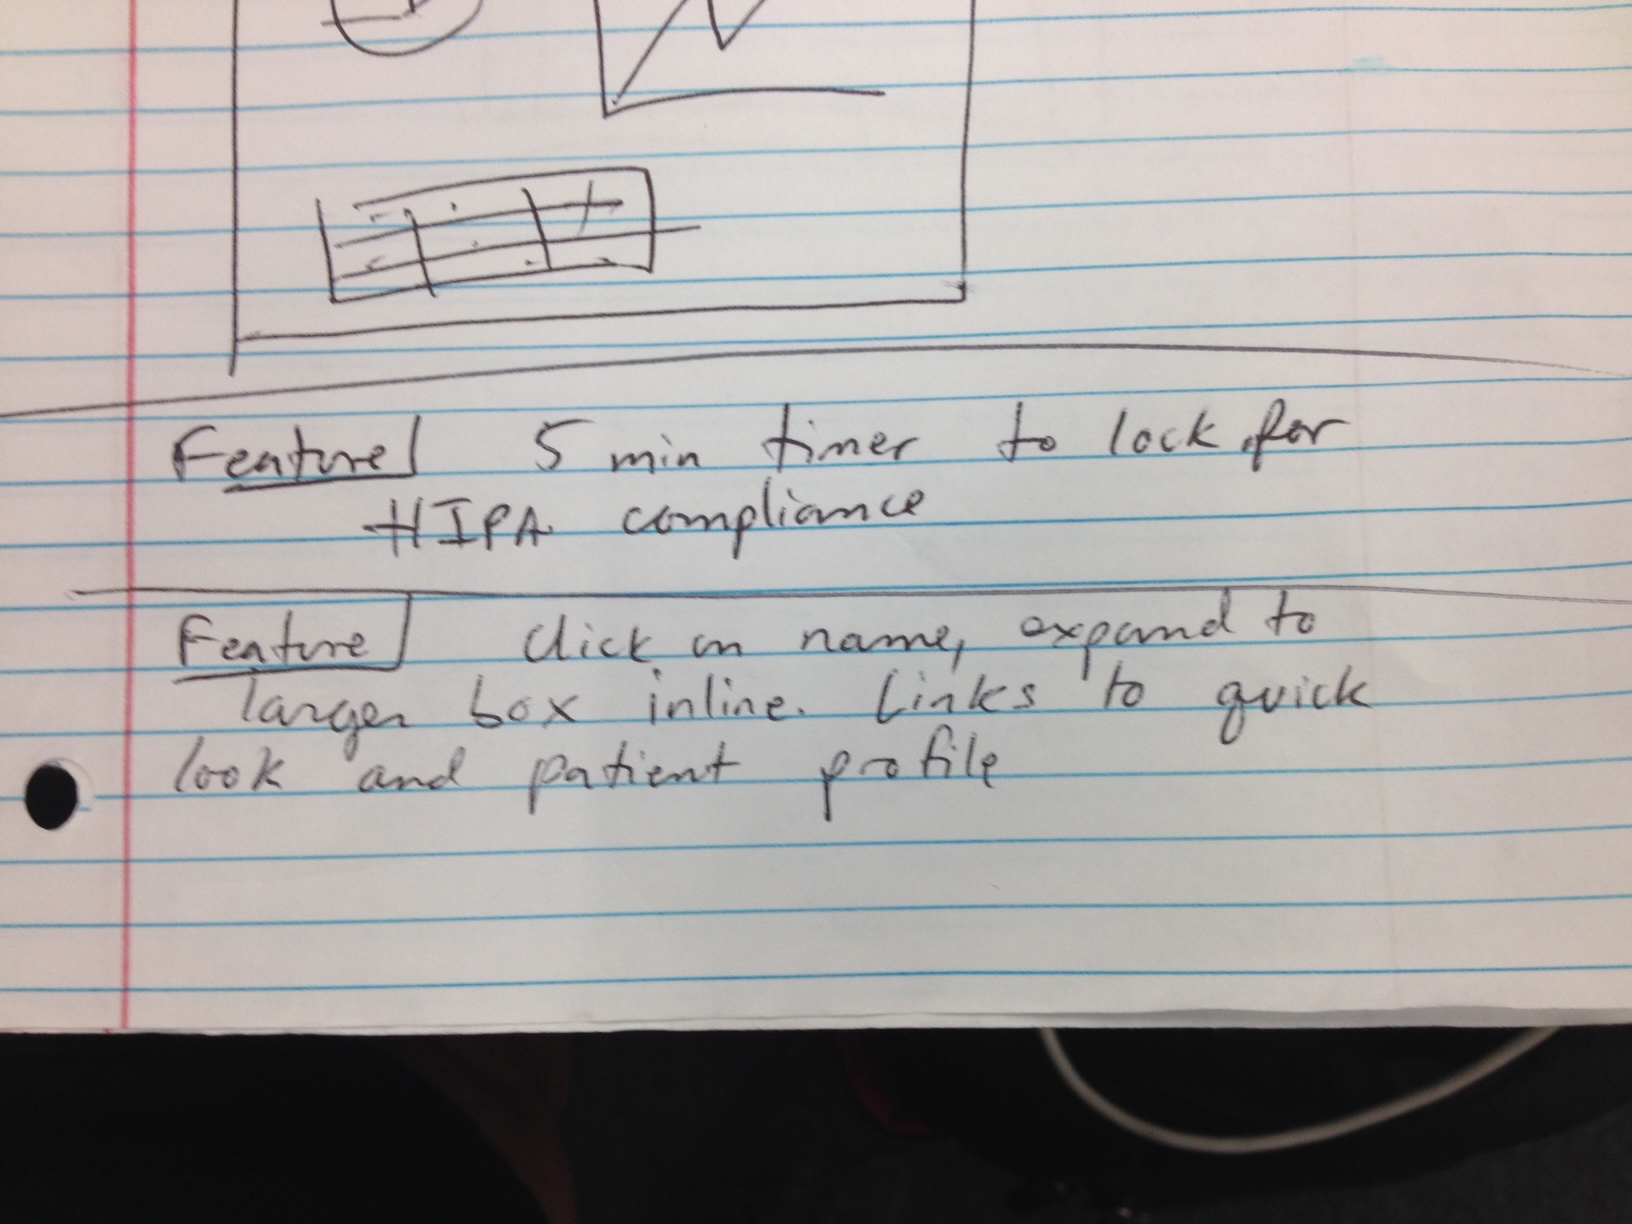 Feature 5 min timer to lock for
HIPA compliance
Feature Click on name, expand to
larger box inline. Links to quick
look and patient profile